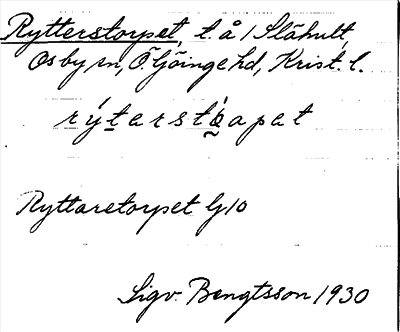 Rytterstorpet, t. å 1 Slähult,
Osby sn, Ö. Göinge hd, Krist. l.
rýterstὰapet
Ryttaretorpet Gj10
Sigv. Bengtsson 1930